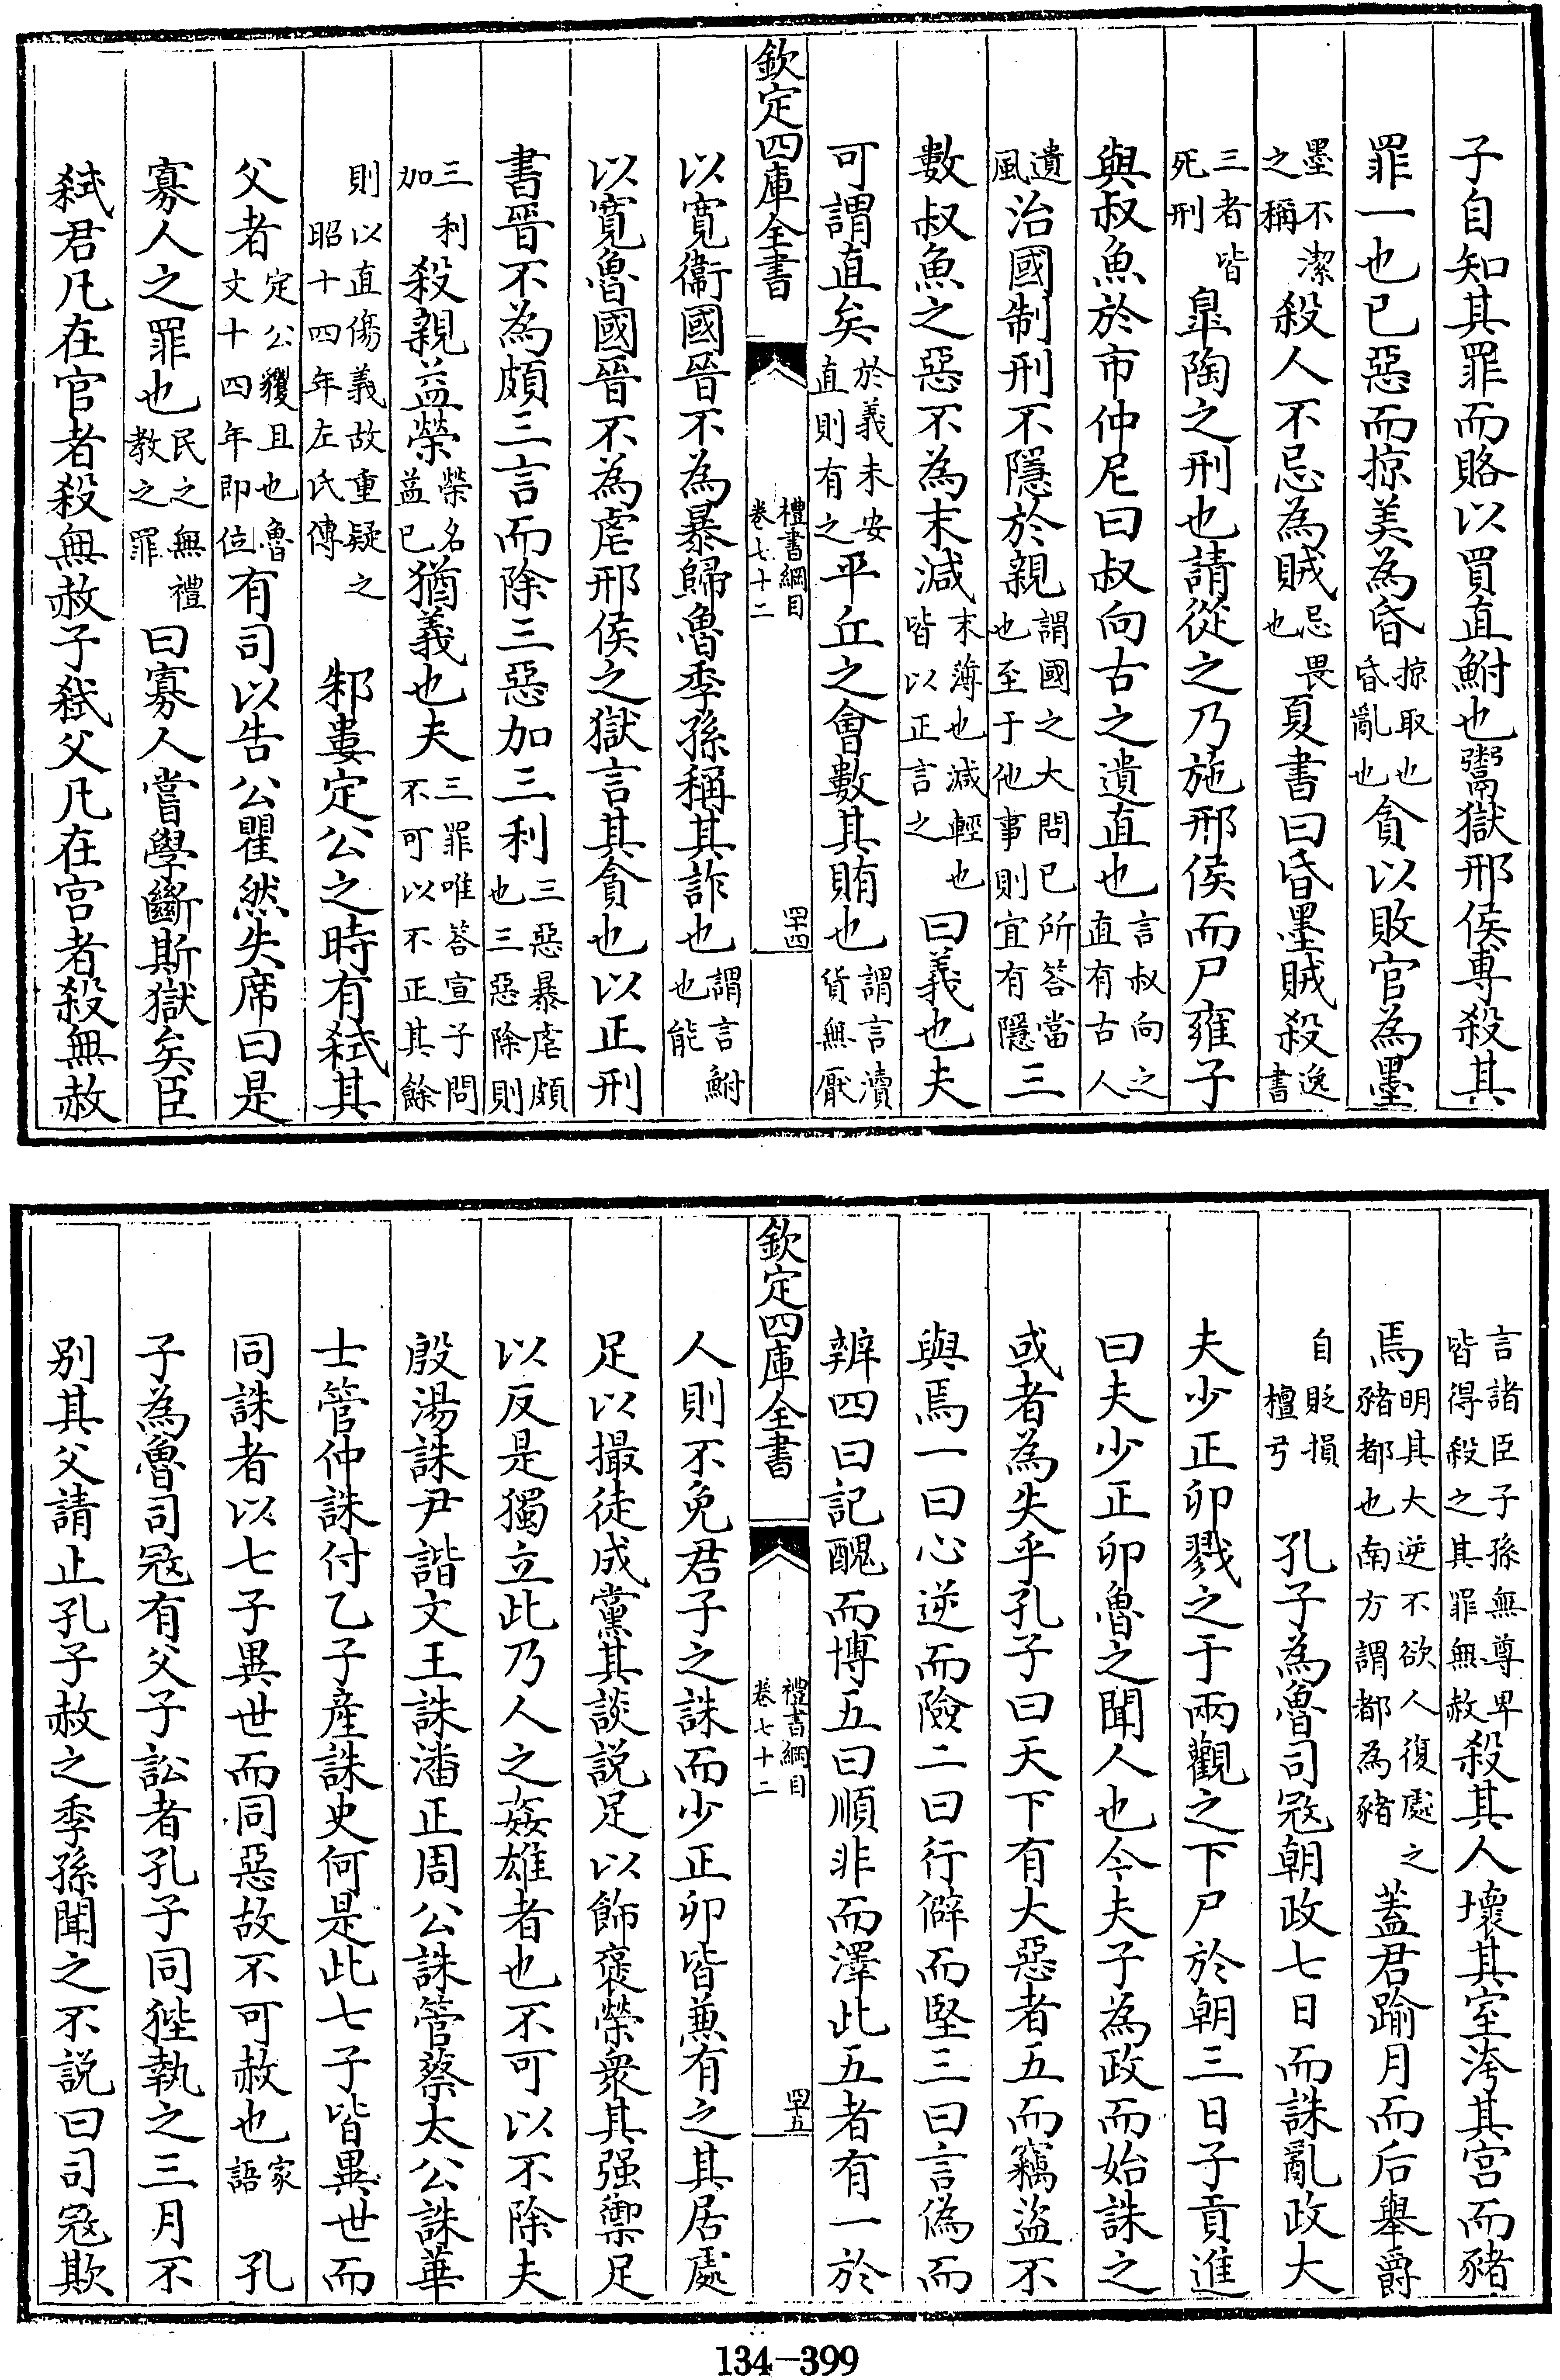 子自知其罪而賂以買直鮒也鬻獄邢侯專殺其
罪一也已惡而掠美為昏掠取也昏亂也貪以敗官為墨
墨不潔之稱殺人不忌為賊忌畏也夏書曰昏墨賊殺逸書
三者皆死刑皐陶之刑也請從之乃施邢侯而尸雍子
與叔魚於市仲尼曰叔向古之遺直也言叔向之直有古人
遺風治國制刑不隱於親謂國之大問已所答當也至于他事則宜有隱三
數叔魚之惡不為末減末薄也減輕也皆以正言之曰義也夫
可謂直矣於義未安直則有之平丘之會數其賄也謂言瀆貨無厭
欽定四庫全書 禮書綱目卷七十二 四十四
以寬衞國晉不為暴歸魯季孫稱其詐也謂言鮒也能
以寬魯國晉不為虐邢侯之獄言其貪也以正刑
書晉不為頗三言而除三惡加三利三惡暴虐頗也三惡除則
三利加殺親益榮榮名益已猶義也夫三罪唯答宣子問不可以不正其餘
則以直傷義故重疑之昭十四年左氏傳 邾婁定公之時有弒其
父者定公貜且也魯文十四年即位有司以告公瞿然失席曰是
寡人之罪也民之無禮教之罪曰寡人嘗學斷斯獄矣臣
弒君凡在官者殺無赦子弒父凡在宮者殺無赦
言諸臣子孫無尊卑皆得殺之其罪無赦殺其人壞其室洿其宮而豬
焉明其大逆不欲人復處之豬都也南方謂都為豬蓋君踰月而后舉爵
自貶損檀弓 孔子為魯司寇朝政七日而誅亂政大
夫少正卯戮之于兩觀之下尸於朝三日子貢進
曰夫少正卯魯之聞人也今夫子為政而始誅之
或者為失乎孔子曰天下有大惡者五而竊盜不
與焉一曰心逆而險二曰行僻而堅三曰言偽而
辨四曰記醜而博五曰順非而澤此五者有一於
欽定四庫全書 禮書綱目卷七十二 四十五
人則不免君子之誅而少正卯皆兼有之其居處
足以撮徒成黨其談說足以飾褒榮衆其强禦足
以反是獨立此乃人之姦雄者也不可以不除夫
殷湯誅尹諧文王誅潘正周公誅管蔡太公誅華
士管仲誅付乙子産誅史何是此七子皆異世而
同誅者以七子異世而同惡故不可赦也家語 孔
子為魯司寇有父子訟者孔子同狴執之三月不
别其父請止孔子赦之季孫聞之不說曰司寇欺
134-399